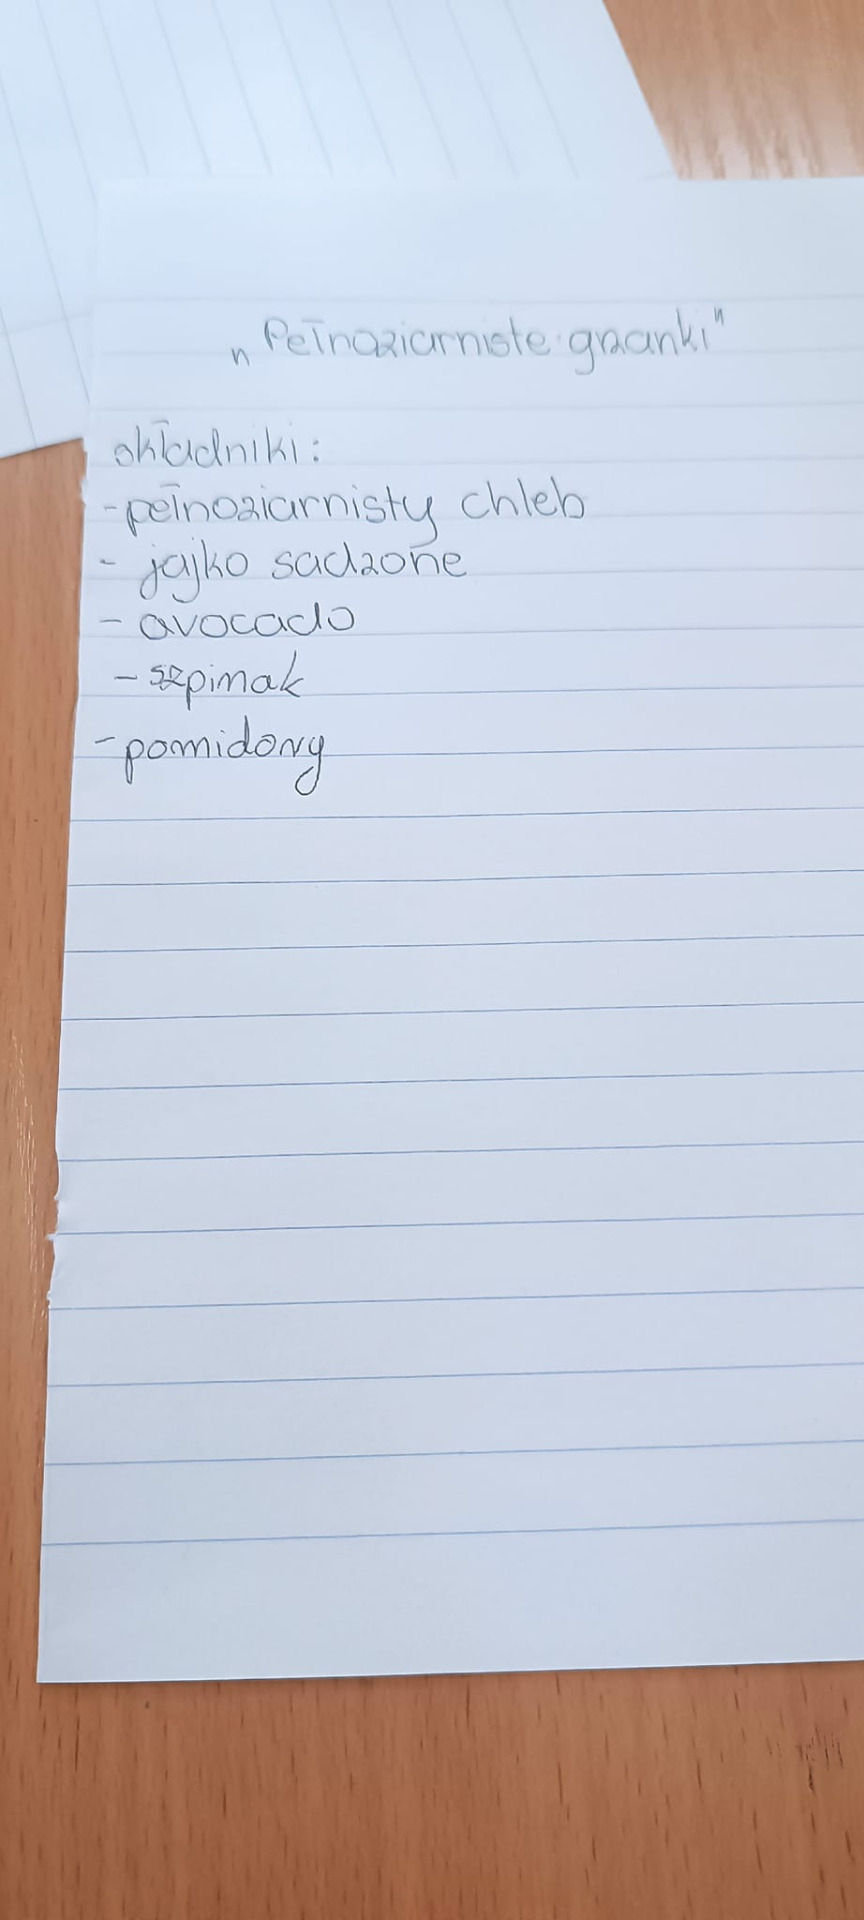 „Pełnoziarniste grzanki"
składniki:
- pełnoziarnisty chleb
- jajko sadzone
- avocado
- szpinak
- pomidory